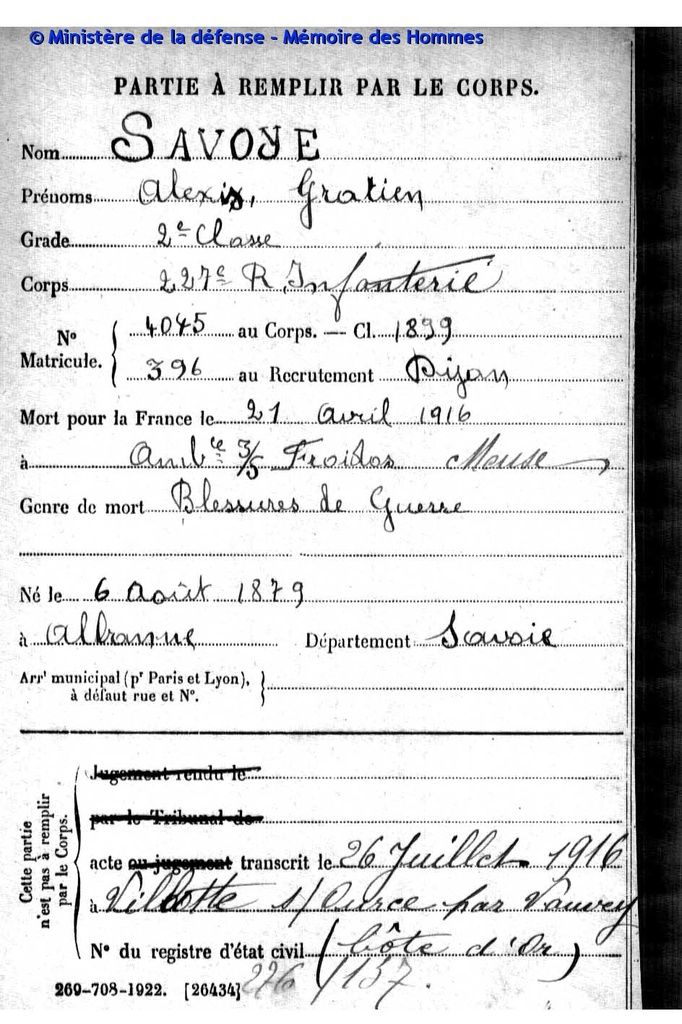 © Ministère de la défense - Mémoire des Hommes
PARTIE À REMPLIR PAR LE CORPS.
Nom SAVOYE
Prénoms Alexis, Gratien
Grade 2e Classe
Corps 227e R. Infanterie
No Matricule. { 4045 au Corps. — Cl. 1899
396 au Recrutement Dijon
Mort pour la France le 21 Avril 1916
à Ambce 3/5 Froidos Meuse
Genre de mort Blessures de Guerre
Né le 6 Août 1879
à Albanne Département Savoie
Arrt municipal (pr Paris et Lyon),
à défaut rue et N°.
Cette partie n'est pas à remplir par le Corps.
Jugement rendu le
par le Tribunal de
acte ou jugement transcrit le 26 Juillet 1916
à Villotte s/ Ource par Vanvey
N° du registre d'état civil (Côte d'Or)
269-708-1922. [26434] 226 / 137.